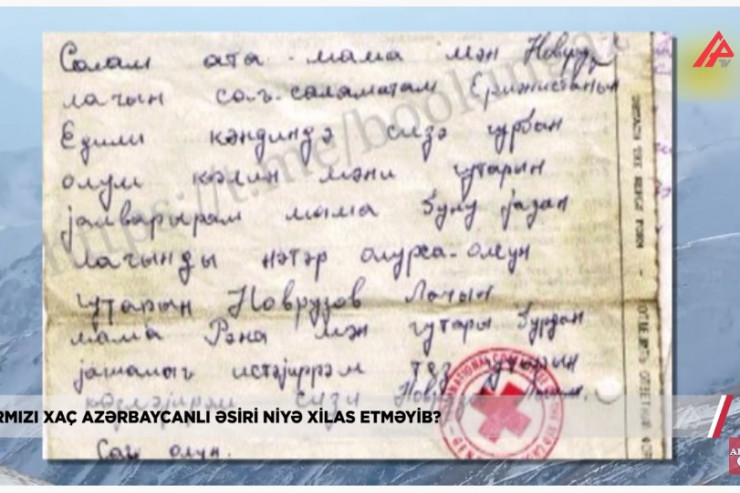 Салам ата. мама мән Новруз
лачын сағ-саламатам Ермнистанын
Едилли кәндиндә сизә гурбан
олум кәлин мәни гутарын
јалварырам мама буну јазан
лачынды нәтәр олурса-олсун
гутарын Новрузов Лачын
мама Рәна мән гутары бурдан
јашамаг истәјиррәм тез гутарын
көзләјирәм сизи
Сағ олун.
https://t.me/bookinqaz
RMIZI XAÇ AZƏRBAYCANLI ƏSİRİ NİYƏ XİLAS ETMƏYİB?